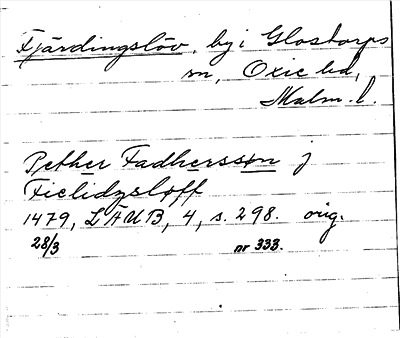 Fjärdingslöv, by i Glostorps
sn, Oxie hd,
Malm. l.
Pether Fadhersson j
Fielidzsløff
1479, LÄUB, 4, s. 298. orig.
28/3 nr 333.